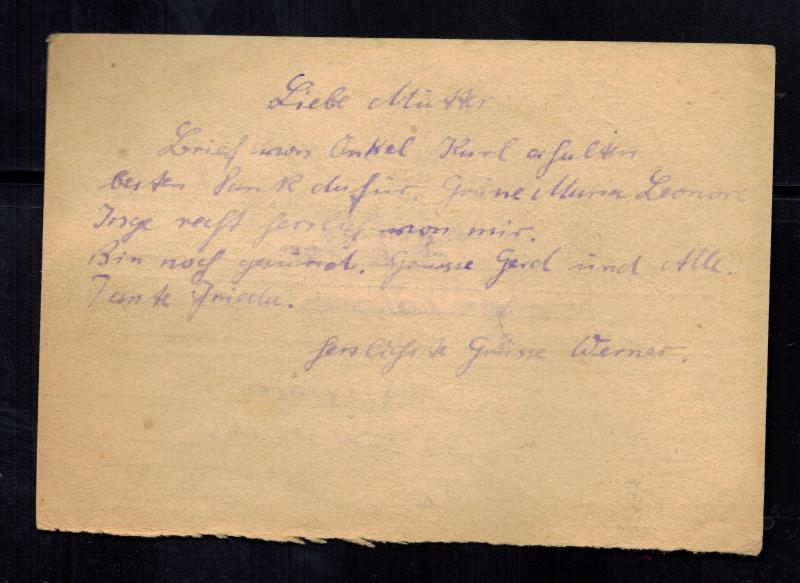 Liebe Mutter
Brief von Onkel Karl erhalten
besten Dank dafür. Grüsse Maria Leonore
Inge recht herzlich von mir.
Bin noch gesund. Grüsse Gerd und Alle.
Tante Frieda.
herzlichste Grüsse Werner.